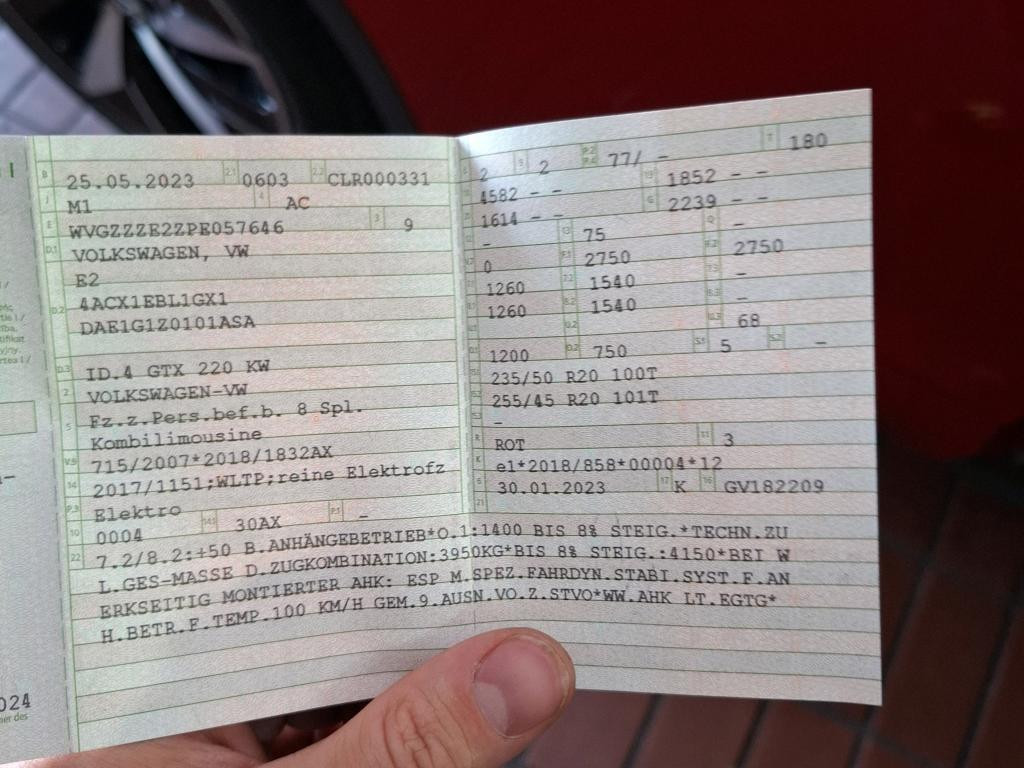 B 25.05.2023 2.1 0603 2.2 CLR000331
J M1 4 AC
E WVGZZZE2ZPE057646 3 9
D.1 VOLKSWAGEN, VW
E2
D.2 4ACX1EBL1GX1
DAE1G1Z0101ASA
D.3 ID.4 GTX 220 KW
2 VOLKSWAGEN-VW
5 Fz.z.Pers.bef.b. 8 Spl.
Kombilimousine
V.9 715/2007*2018/1832AX
14 2017/1151;WLTP;reine Elektrofz
P.3 Elektro
10 0004 14.1 30AX P.1 –
22 7.2/8.2:+50 B.ANHÄNGEBETRIEB*O.1:1400 BIS 8% STEIG.*TECHN.ZU
L.GES-MASSE D.ZUGKOMBINATION:3950KG*BIS 8% STEIG.:4150*BEI W
ERKSEITIG MONTIERTER AHK: ESP M.SPEZ.FAHRDYN.STABI.SYST.F.AN
H.BETR.F.TEMP.100 KM/H GEM.9.AUSN.VO.Z.STVO*WW.AHK LT.EGTG*
2 9 2 P.2 P.4 77/ – T 180
4582 – – 1852 – –
1614 – – G 2239 – –
– 13 75 Q –
0 F.1 2750 F.2 2750
1260 7.2 1540 7.3 –
1260 8.2 1540 8.3 –
U.2 U.3 68
1200 O.2 750 S.1 5 S.2 –
235/50 R20 100T
255/45 R20 101T
–
R ROT 11 3
K e1*2018/858*00004*12
6 30.01.2023 17 K 16 GV182209
21
024